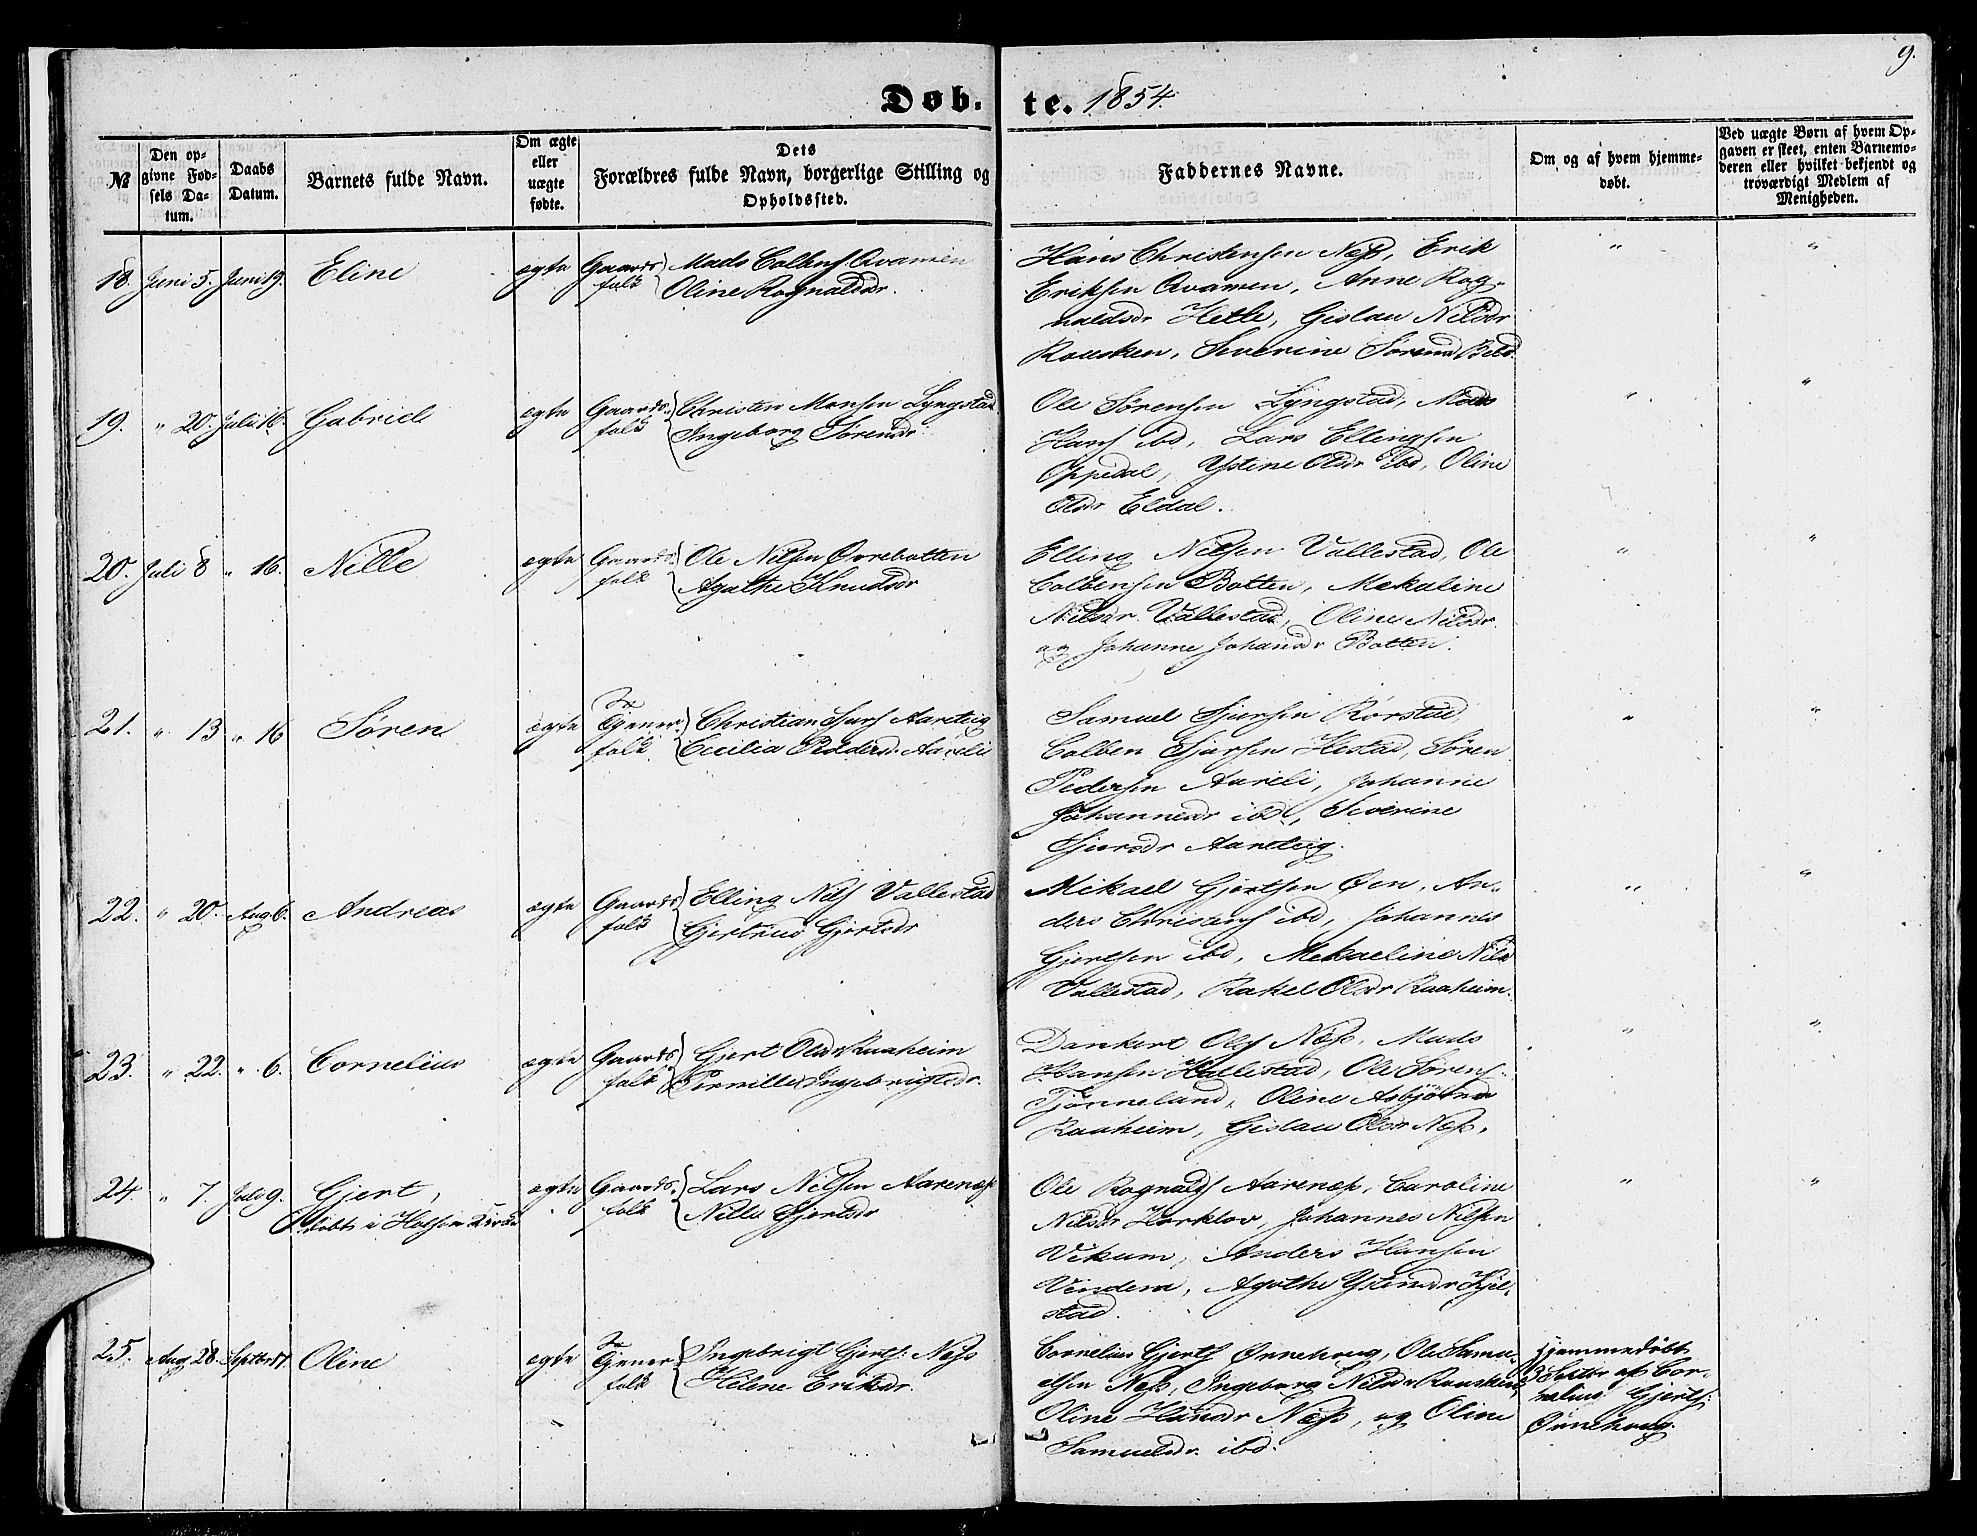 9.
Døb. te. 1854
№
Den op-
givne Fød-
sels Da-
tum.
Daabs
Datum.
Barnets fulde Navn.
Om ægte
eller
uægte
fødte.
Dets
Forældres fulde Navn, borgerlige Stilling og
Opholdssted.
Faddernes Navne.
Om og af hvem hjemme-
døbt.
Ved uægte Børn af hvem Op-
gaven er skeet, enten Barnemo-
deren eller hvilket bekjendt og
troværdigt Medlem af
Menigheden.
18. Juni 5. Juni 19. Eline ægte Gaards folk Mads Colbens. Qvamen
Oline Rognaldsdr.
Hans Christensen Næss, Erik
Eriksen Qvamen, Anne Rog-
naldsdr Hetle, Gislau Nilsdr
Rousken, Severine Sørensd
" "
19. " 20. Juli 16. Gabriel ægte Gaards- folk Christen Monsen Lyngstad
Ingeborg Sørensdr
Ole Sørensen Lyngstad, Mads
Hans ibd, Lars Ellingsen
Oppedal, Ystine Olsdr ibd, Oline
Olsdr Eldal.
" "
20. Juli 8 " 16. Nille ægte Gaards- folk Ole Nilsen Øvrebotten
Agathe Knudsdr
Elling Nilsen Vallestad, Ole
Colbensen Botten, Mekaline
Nilsdr. Vallestad, Oline Nilsdr.
og Johanne Johansdr Botten.
" "
21. " 13 " 16 Søren ægte Tjener- folk Christian Sjurs Aareteig
Cecilia Pedersd. Aareli
Samuel Sjursen Rørstad,
Colben Sjursen Hestad, Søren
Pedersen Aareli, Johanne
Johannesdr ibd, Severine
Sjursdr Aareteig.
" "
22. " 20. Aug 6. Andreas ægte Gaards folk Elling Nils Vallestad
Gjertrud Gjertsdr
Mikael Gjertsen Øen, An-
ders Christens ibd, Johannes
Gjertsen ibd, Mekaeline Nils
Vallestad, Rakel Olsdr Raaheim.
" "
23. " 22. " 6. Cornelius ægte Gaards folk Gjert Olss Raaheim
Pernille Ingebrigtsdr.
Dankert Ols Næss, Mads
Hansen Hallestad, Ole Sørens-
Tjønneland, Oline Asbjørnsd
Raaheim, Gislau Olsdr Næss.
" "
24. " 7. Juli 9. Gjert,
døbt i Holsen Kirke ægte Gaards- folk Lars Nilsen Aarenæss
Nille Gjertsdr
Ole Rognalds Aarenæss, Caroline
Nilsdr Horklov, Johannes Nilsen
Vikum, Anders Hansen
Agathe Ystensdr Hjel-
stad.
" "
25. Aug 28. Septbr 17. Oline ægte Tjener- folk Ingebrigt Gjerts. Næss
Helene Eriksdr.
Cornelius Gjerts Ørnehoug, Ole Samu-
elsen Næss, Ingeborg Nilsdr Rousken,
Oline Hansdr Næss, og Oline
Samuelsdr. ibd.
Hjemmedøbt
3 Septbr af Cor-
nelius Gjerts.
Ørnehoug.